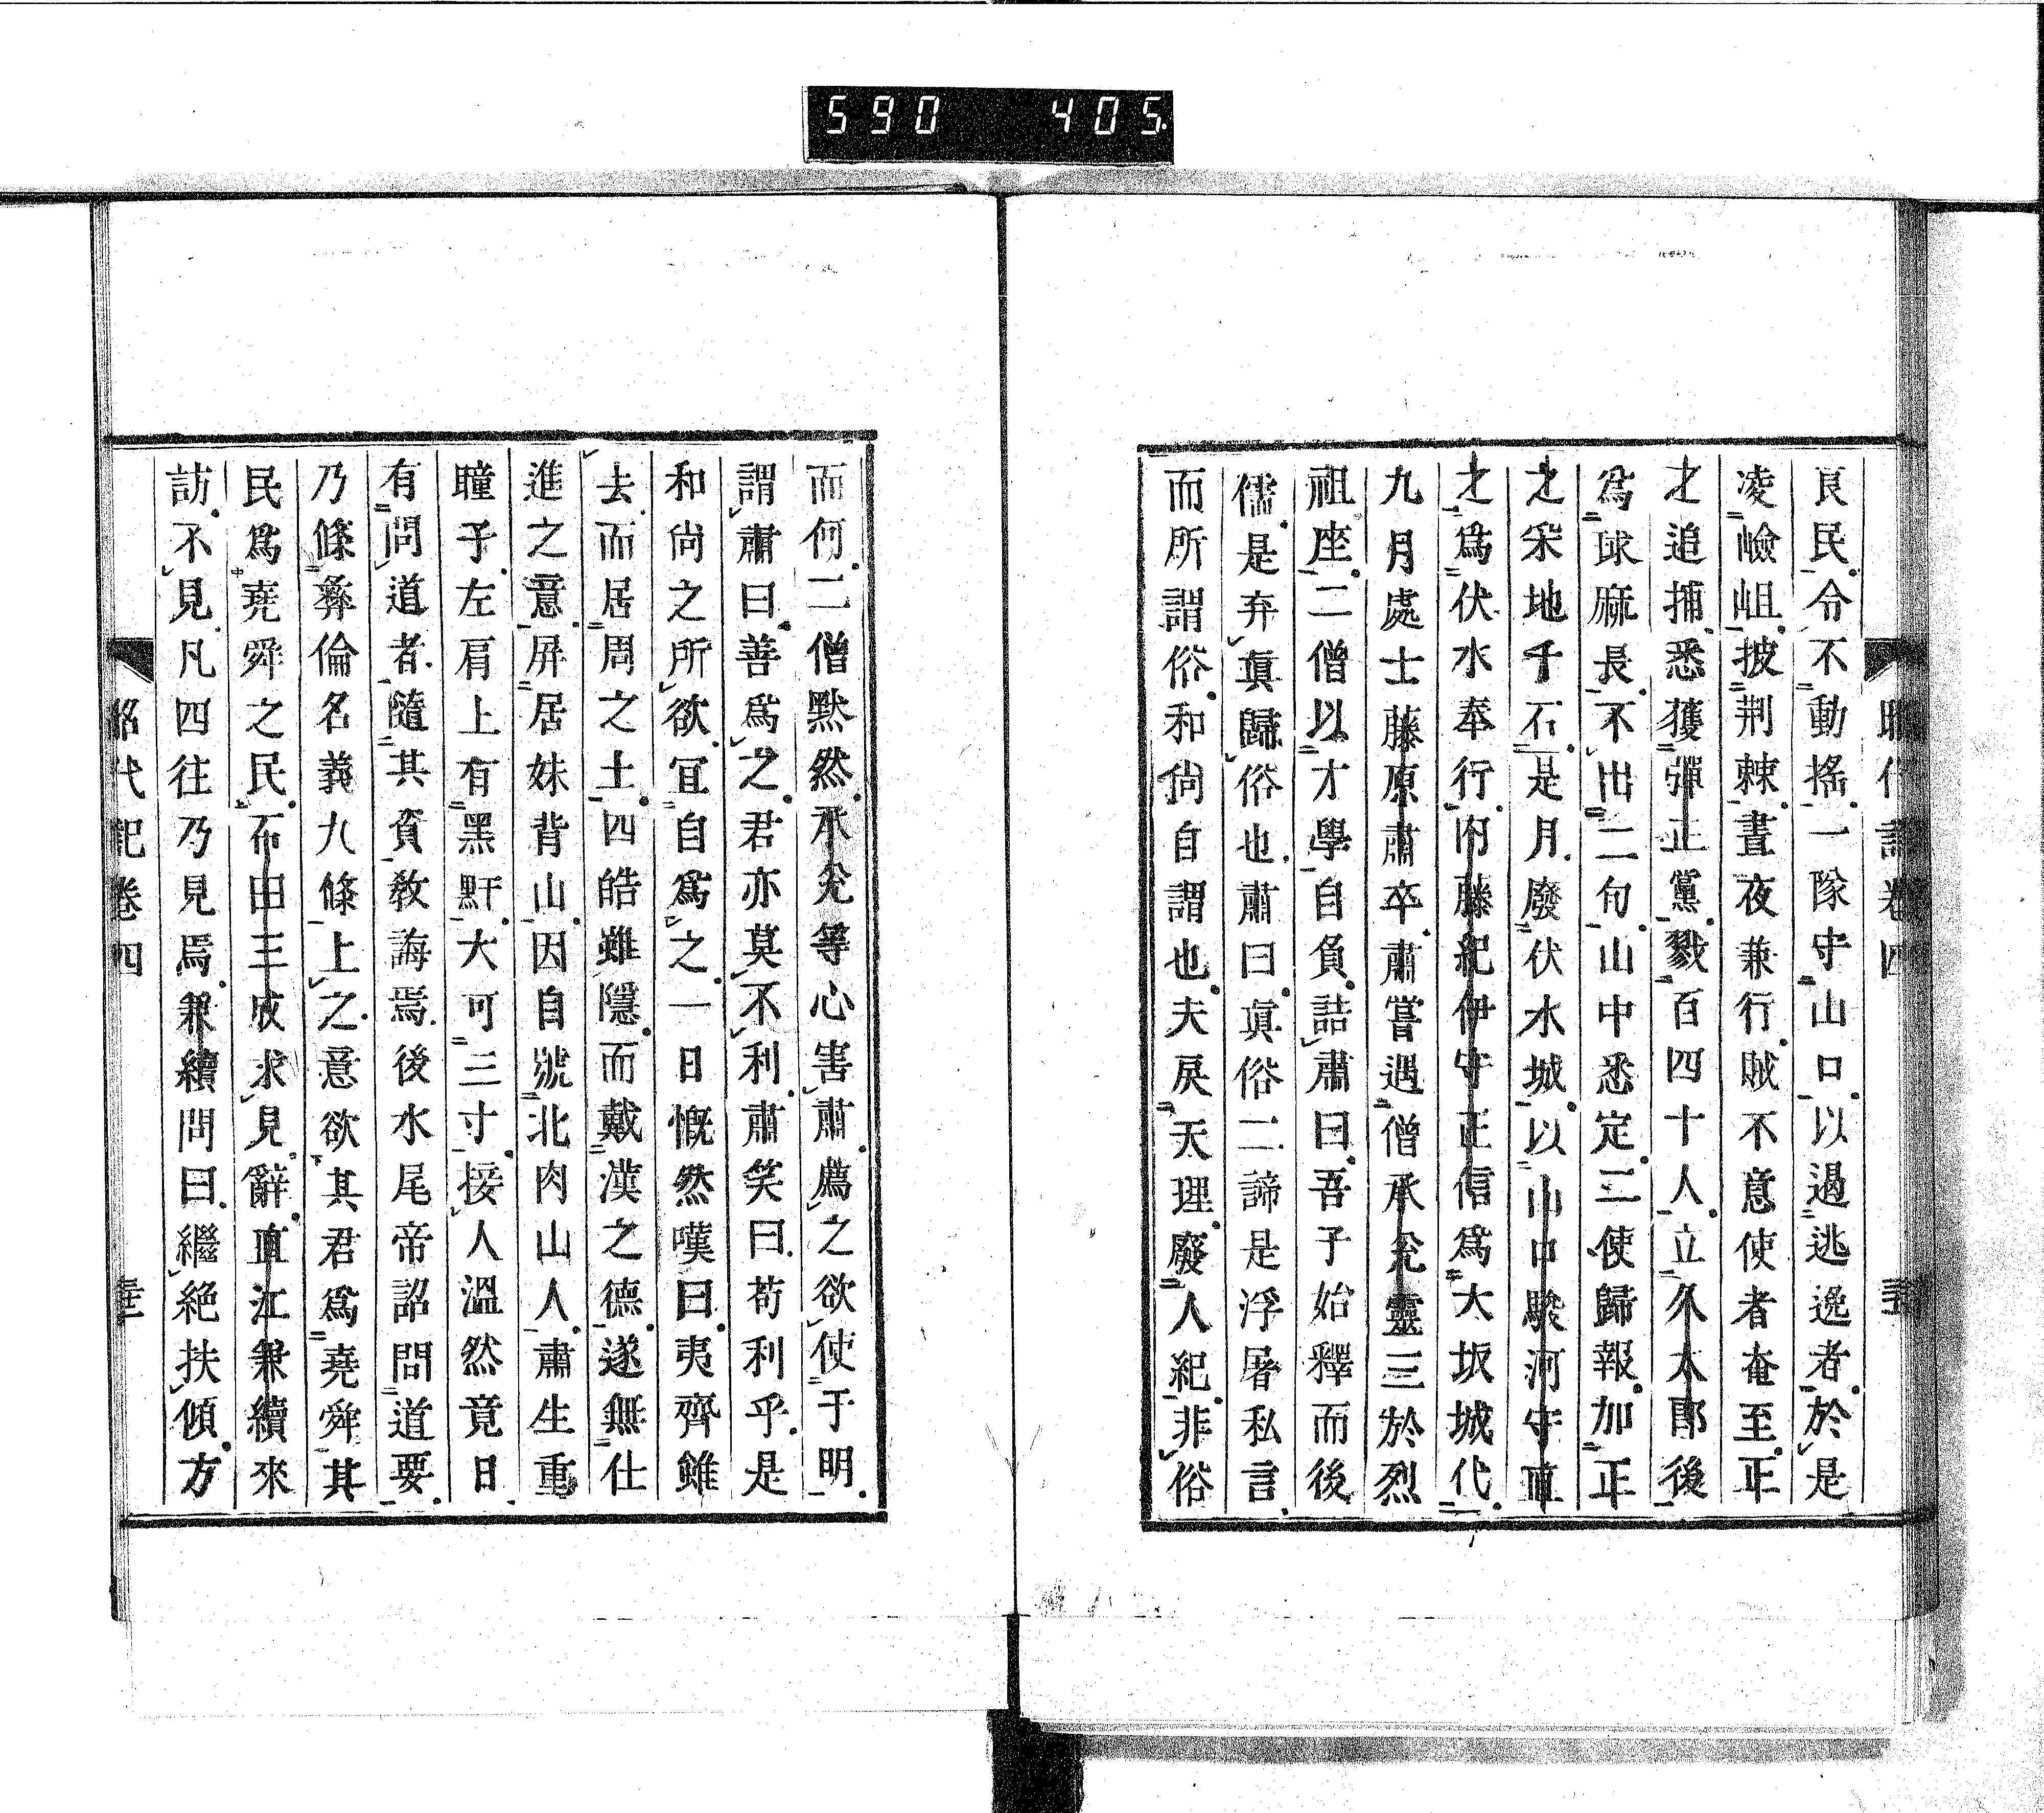 590 405
昭代記卷四
良民令不動搖一隊守山口以遏逃逸者於是
凌嶮岨披荆棘晝夜兼行賊不意使者奄至正
之追捕悉獲彈正黨戮百四十人立久太郎後
爲球麻長不出二旬山中悉定二使歸報加正
之采地千石是月廢伏水城以山口駿河守直
之爲伏水奉行内藤紀伊守正信爲大坂城代
九月處士藤原肅卒肅嘗遇僧承兌靈三於烈
祖座二僧以才學自負詰肅曰吾子始釋而後
儒是弃眞歸俗也肅曰眞俗二諦是浮屠私言
而所謂俗和尙自謂也夫戾天理廢人紀非俗
而何二僧默然承兌等心害肅薦之欲使于明
謂肅曰善爲之君亦莫不利肅笑曰苟利乎是
和尙之所欲冝自爲之一日慨然嘆曰夷齊雖
去而居周之土四皓雖隱而戴漢之德遂無仕
進之意屏居妹背山因自號北肉山人肅生重
瞳子左肩上有黑䵟大可三寸接人溫然竟日
有問道者隨其資敎誨焉後水尾帝詔問道要
乃條彝倫名義九條上之意欲其君爲堯舜其
民爲堯舜之民石田三成求見辭直江兼續來
訪不見凡四往乃見焉兼續問曰繼絶扶傾方
昭代記卷四